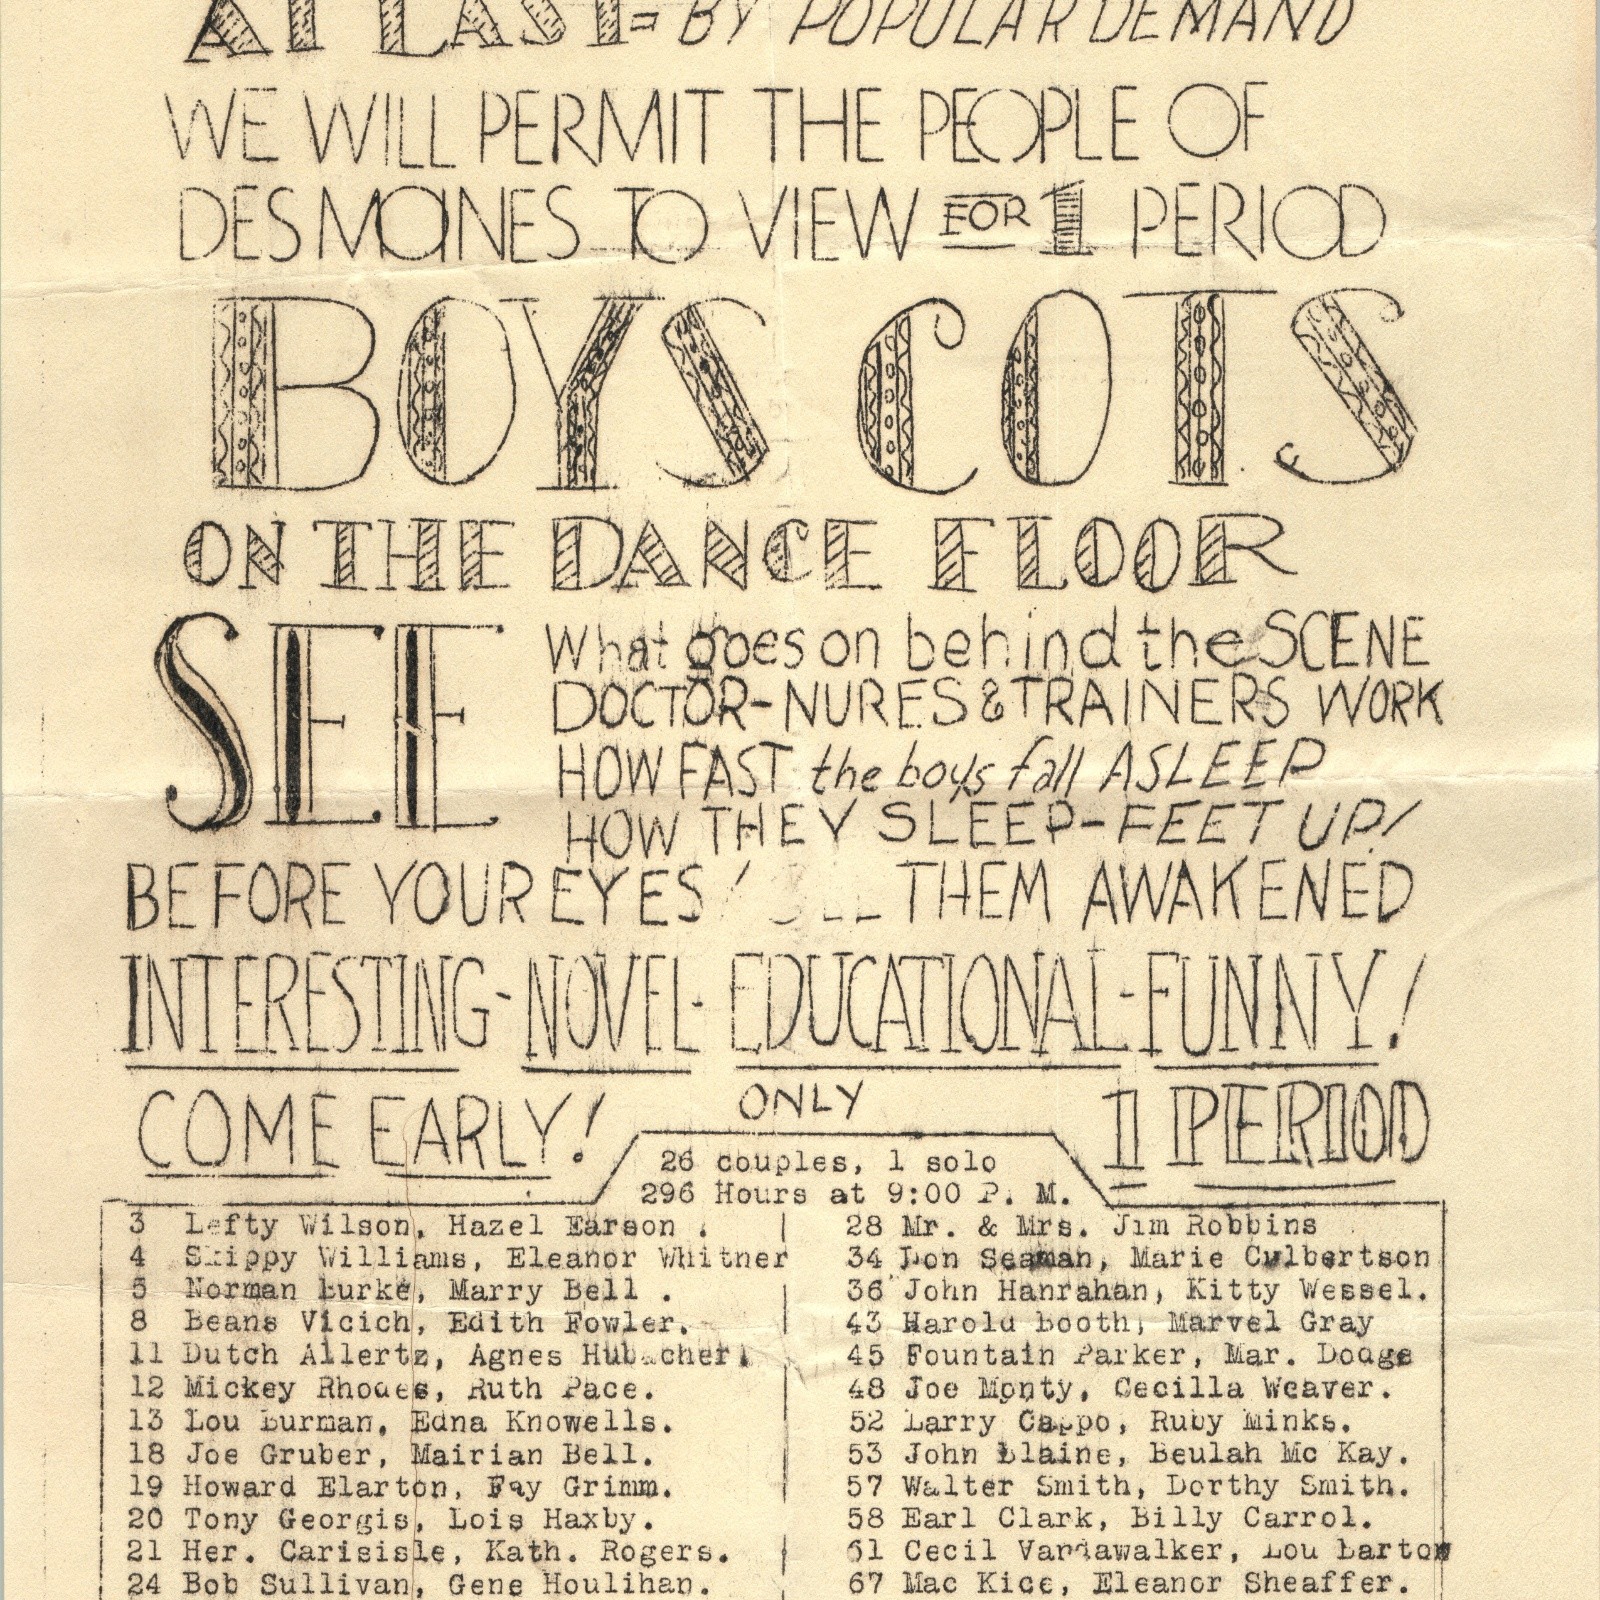 AT LAST = BY POPULAR DEMAND
WE WILL PERMIT THE PEOPLE OF
DES MOINES TO VIEW FOR 1 PERIOD
BOYS COTS
ON THE DANCE FLOOR
SEE
What goes on behind the SCENE
DOCTOR-NURES & TRAINERS WORK
HOW FAST the boys fall ASLEEP
HOW THEY SLEEP-FEET UP!
BEFORE YOUR EYES! SEE THEM AWAKENED
INTERESTING-NOVEL-EDUCATIONAL-FUNNY!
COME EARLY! ONLY 1 PERIOD
26 couples, 1 solo
296 Hours at 9:00 P. M.
3 Lefty Wilson, Hazel Earson .
4 Skippy Williams, Eleanor Whitner
5 Norman Burke, Marry Bell .
8 Beans Vicich, Edith Fowler.
11 Dutch Allertz, Agnes Hubacher.
12 Mickey Rhodes, Ruth Pace.
13 Lou Burman, Edna Knowells.
18 Joe Gruber, Mairian Bell.
19 Howard Elarton, Fay Grimm.
20 Tony Georgis, Lois Haxby.
21 Her. Carisisle, Kath. Rogers.
24 Bob Sullivan, Gene Houlihan.
28 Mr. & Mrs. Jim Robbins
34 Don Seaman, Marie Culbertson
36 John Hanrahan, Kitty Wessel.
43 Harold Booth, Marvel Gray
45 Fountain Parker, Mar. Dodge
48 Joe Monty, Cecilla Weaver.
52 Larry Cappo, Ruby Minks.
53 John Blaine, Beulah Mc Kay.
57 Walter Smith, Dorthy Smith.
58 Earl Clark, Billy Carrol.
61 Cecil Vandawalker, Lou Barton
67 Mac Kice, Eleanor Sheaffer.